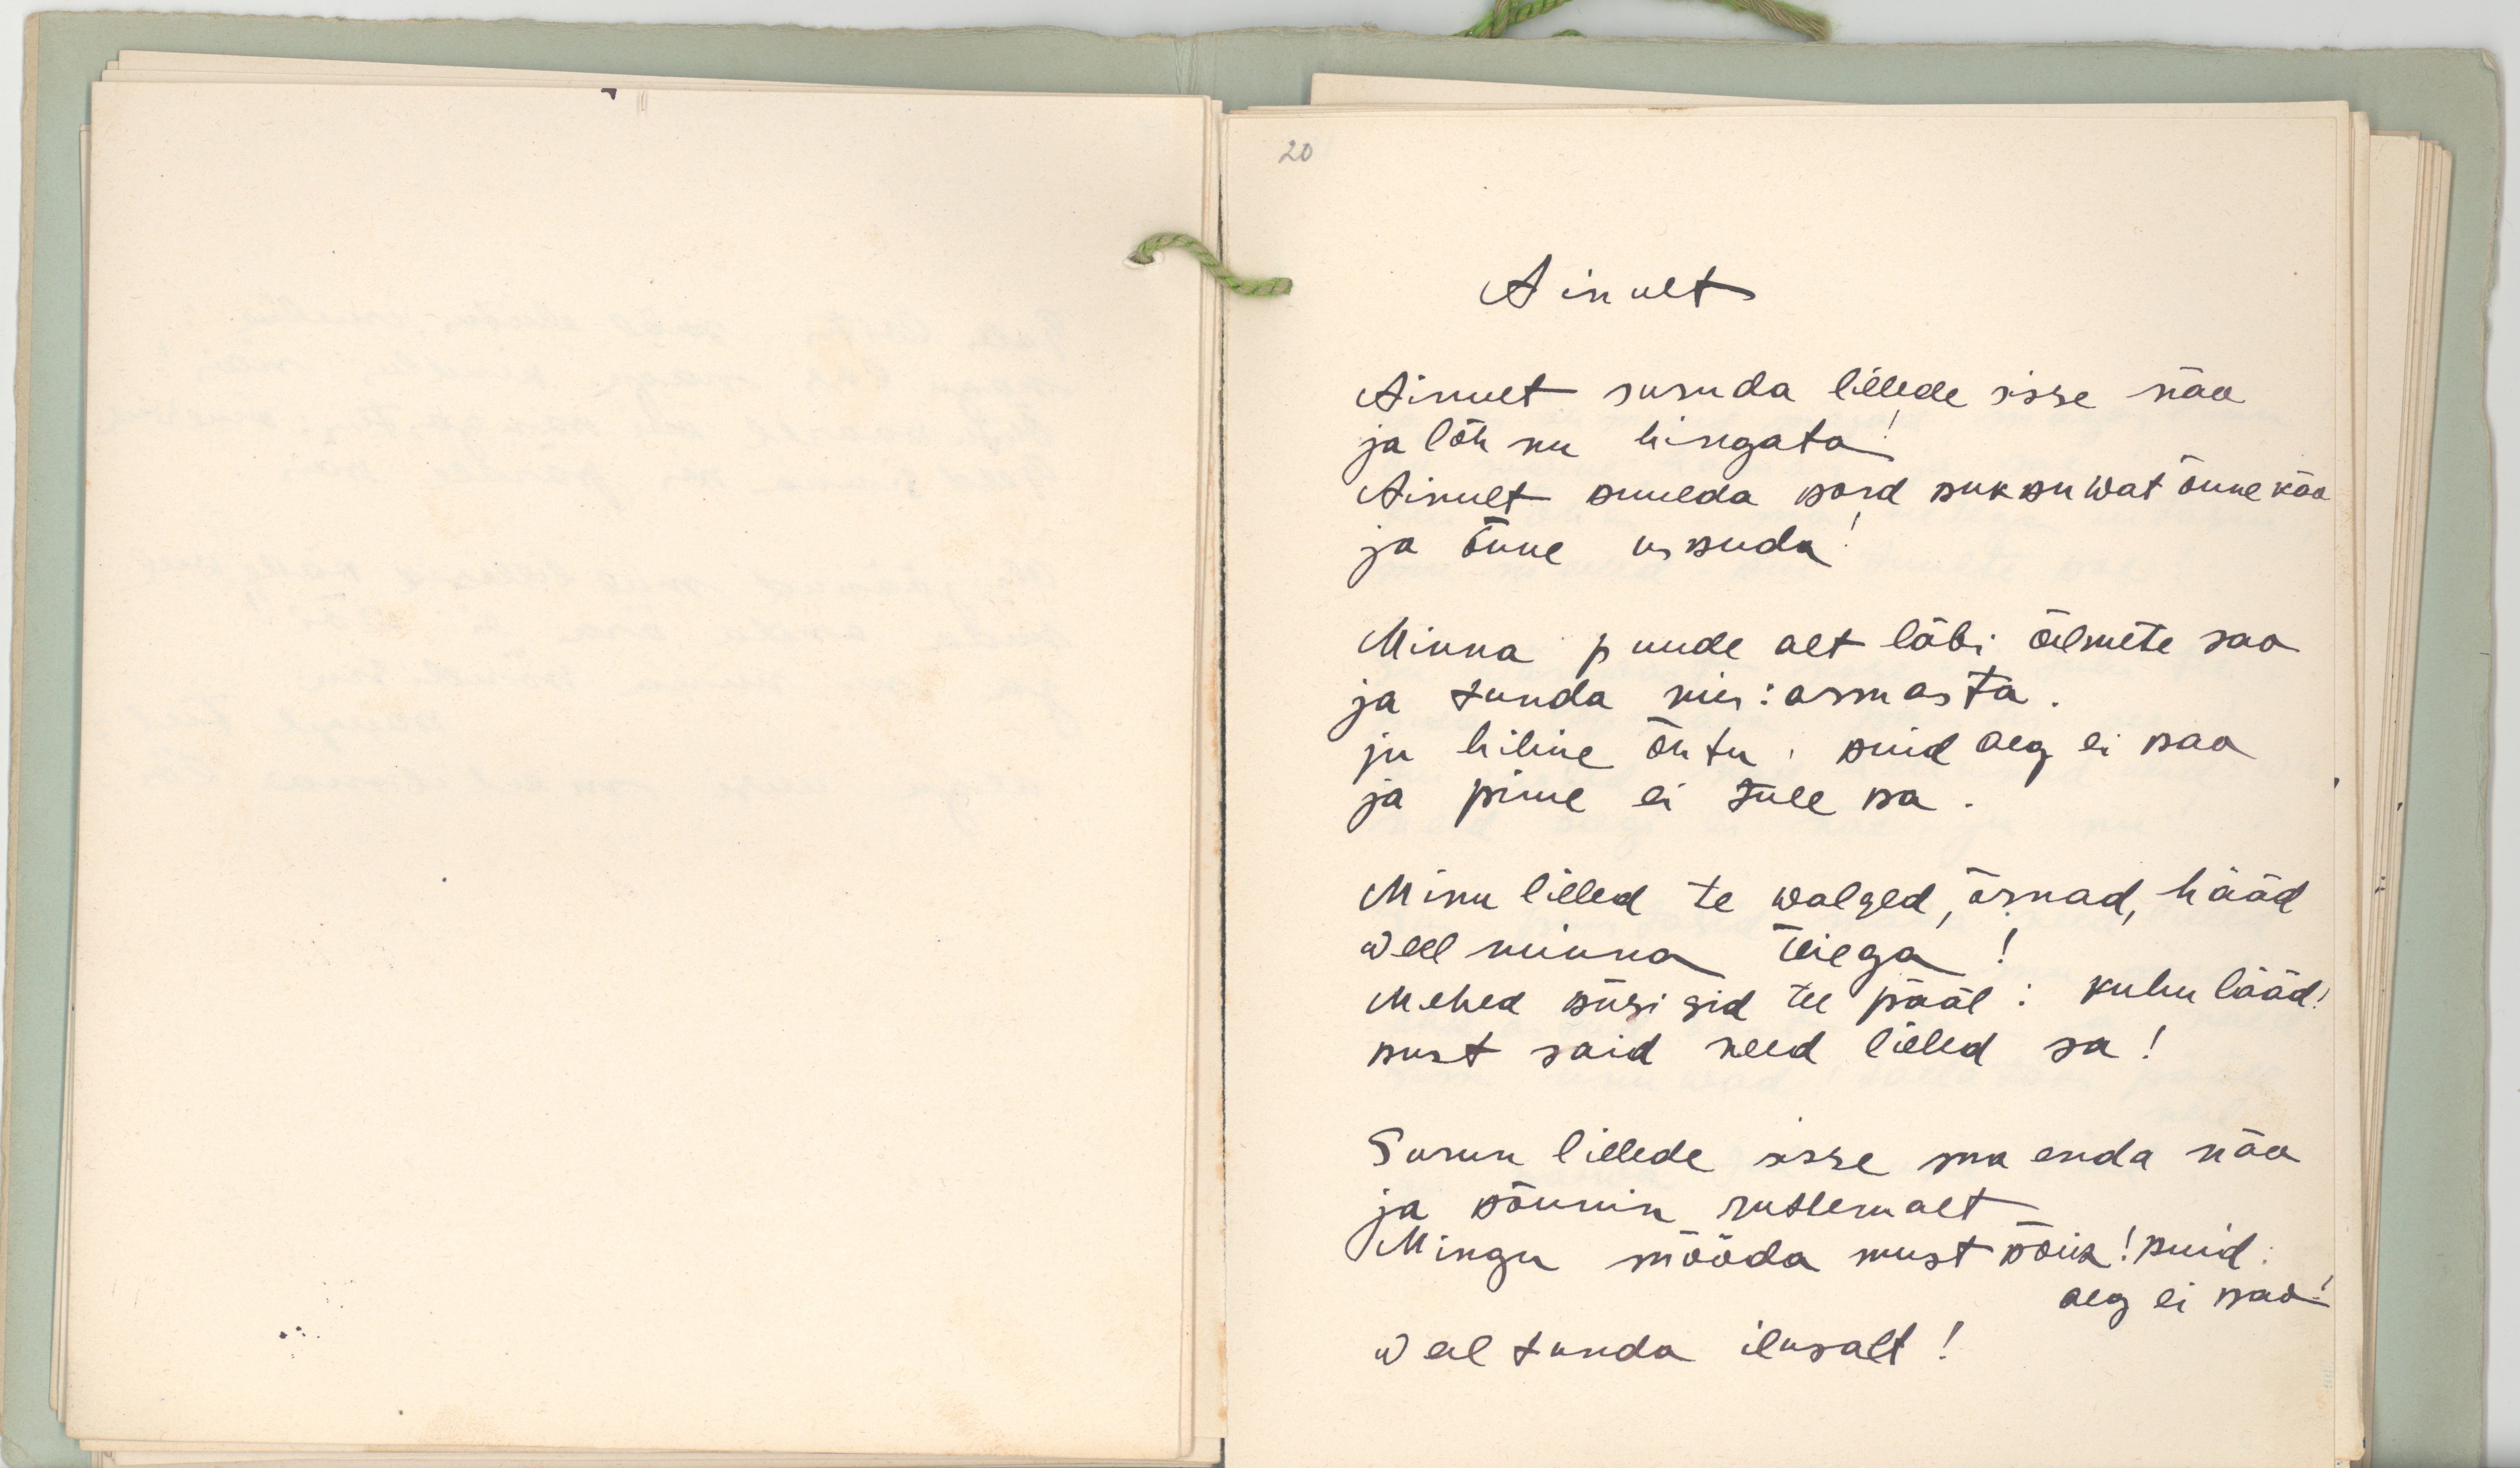 20
Ainult
Ainult suruda lillede sisse näo
ja lõhnu hingata!
Ainult kuulda kord kukkuwat õnnekäo
ja õnne uskuda!
Minna puude alt läbi õilmete sao
ja tunda niis: armasta.
ju hiline õhtu, kuid aeg ei kao
ja pime ei tule ka.
Minu lilled te walged, õrnad, hääd
weel minna teiega!
Mehed küsisid tee pääl: kuhu lääd!
kust said need lilled sa!
Surun lillede sisse ma enda näo
ja kõnnin ruttemalt
Mingu mööda must kõik! kuid
aeg ei kao!
weel tunda ilusalt!